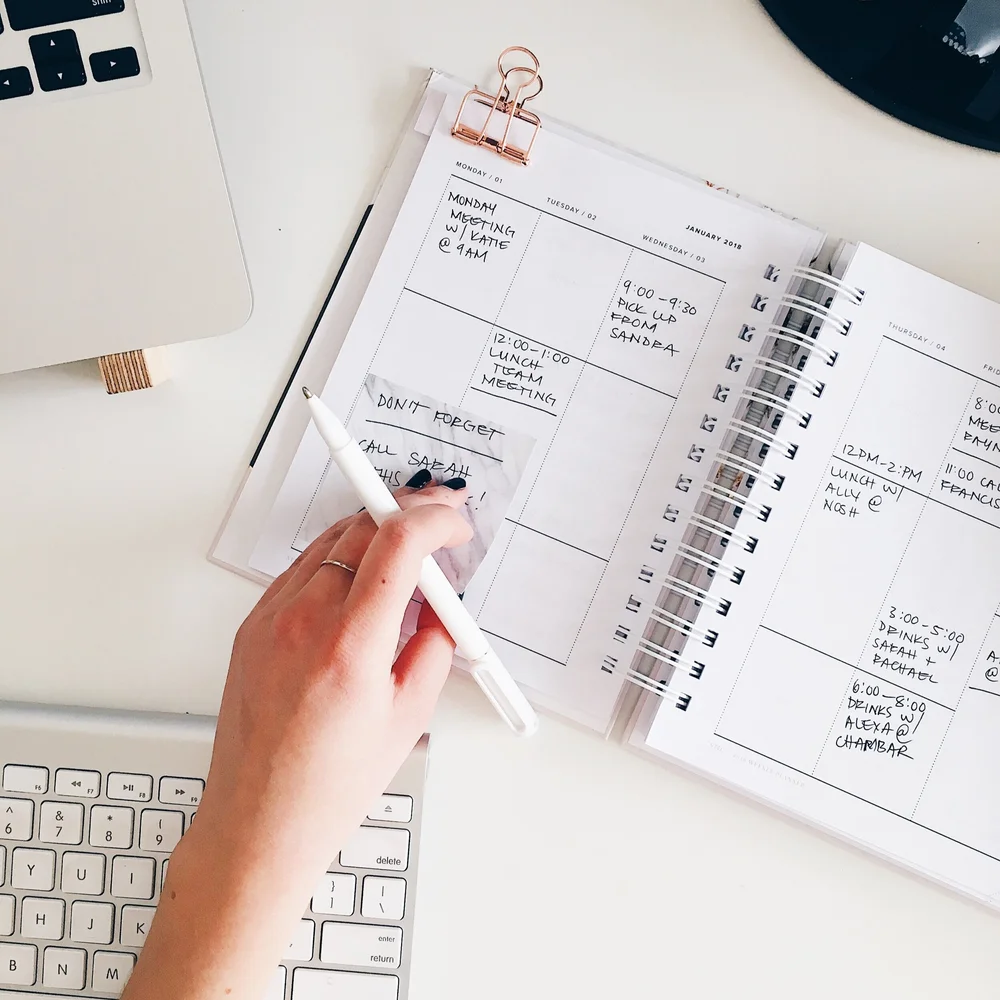 MONDAY / 01
MONDAY
MEETING
W/ KATIE
@ 9AM
DON'T FORGET
CALL SARAH
THIS
!
TUESDAY / 02
12:00-1:00
LUNCH
TEAM
MEETING
JANUARY 2018
WEDNESDAY / 03
9:00-9:30
PICK UP
FROM
SANDRA
THURSDAY / 04
12PM-2:PM
LUNCH W/
ALLY @
NOSH
FRI
8:00
MEE
11:00 CAL
FRANCIS
3:00-5:00
DRINKS W/
SARAH +
RACHAEL
6:00-8:00
DRINKS W/
ALEXA @
CHAMBAR
A
@
shift
F6
F7
F8
F9
^
6
&
7
*
8
(
9
delete
Y
U
I
}
]
|
\
H
J
K
enter
return
B
N
M